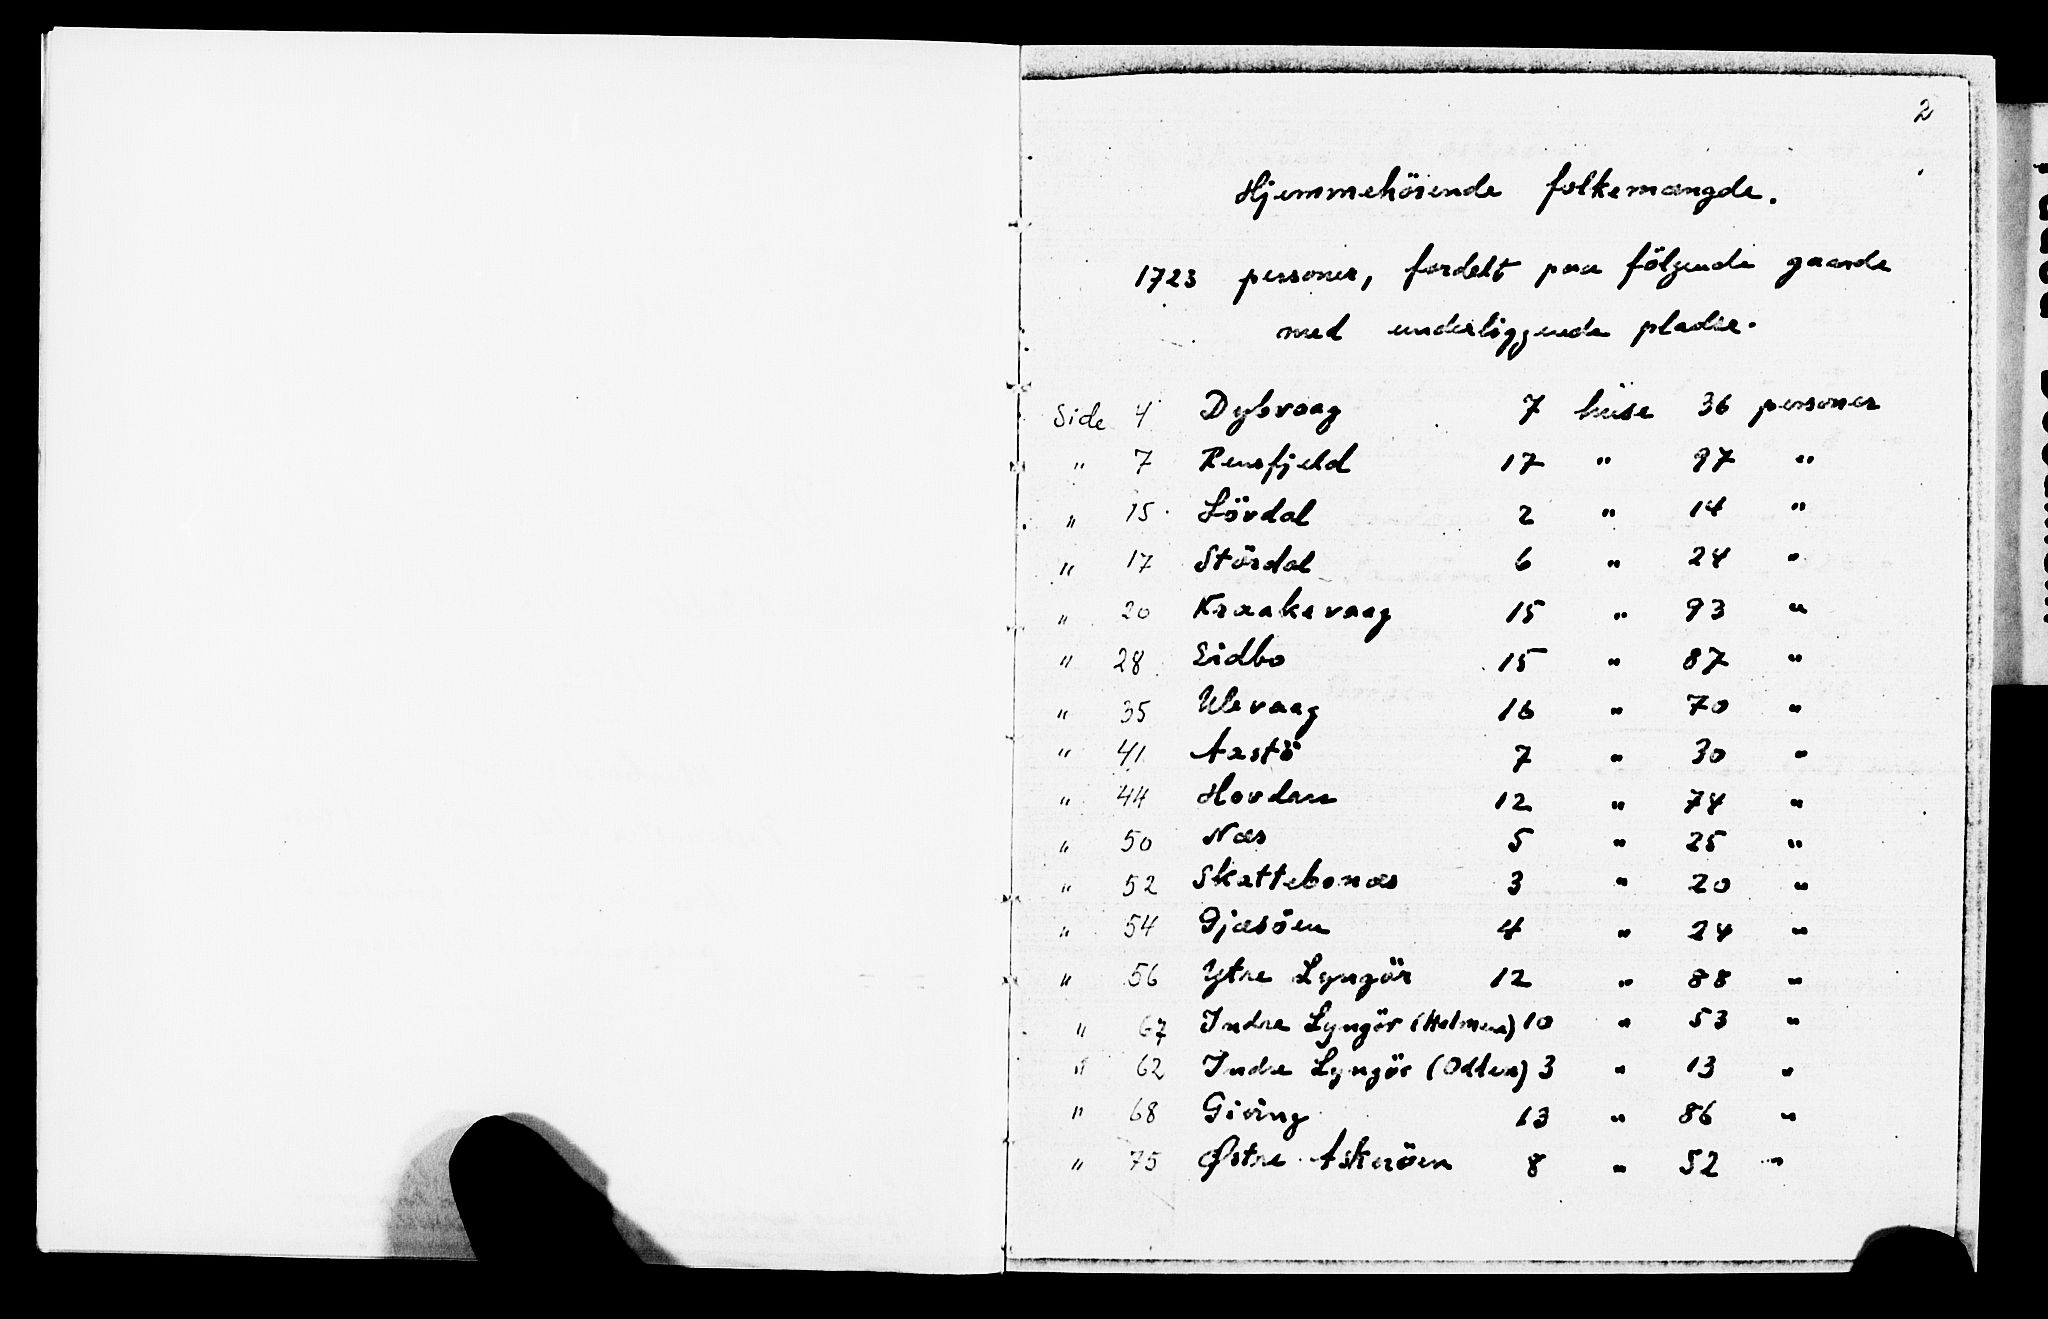 2
Hjemmehörende folkemængde.
1723 personer, fordelt paa fölgende gaarde
med underliggende pladser.
Side 4 Dybvaag 7 huse 36 personer
" 7 Rensfjeld 17 " 97 "
" 15 Lövdal 2 " 14 "
" 17 Stördal 6 " 24 "
" 20 Kraakevaag 15 " 93 "
" 28 Eidbo 15 " 87 "
" 35 Ulevaag 16 " 70 "
" 41 Aastö 7 " 30 "
" 44 Hovdan 12 " 74 "
" 50 Næs 5 " 25 "
" 52 Skattebonæs 3 " 20 "
" 54 Gjæsöen 4 " 24 "
" 56 Ytre Lyngör 12 " 88 "
" 67 Indre Lyngör (Holmen) 10 " 53 "
" 62 Indre Lyngör (Odden) 3 " 13 "
" 68 Giving 13 " 86 "
" 75 Østre Askeröen 8 " 52 "